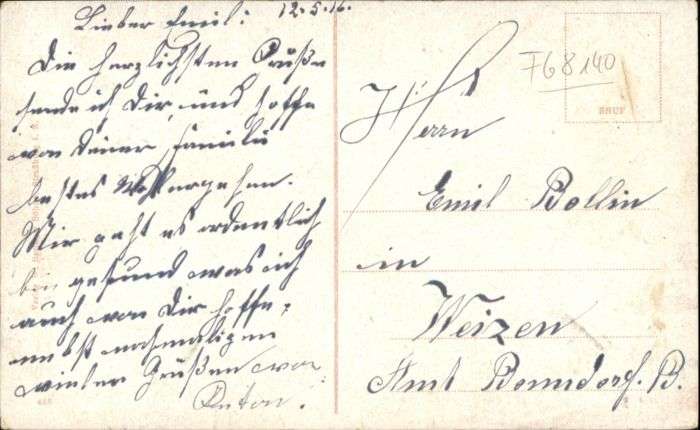 12.5.16.
Lieber Emil!
Die herzlichsten Grüße
sende ich Dir, und hoffe
von deiner Familie
bestes Wohlergehen.
Mir geht es ordentlich
bin gesund was ich
auch von Dir hoffe,
nebst nochmaligen
vieler Grüßen von
Anton.
768140
Herrn
Emil Bollin
in
Weizen
Amt Bonndorf. B.